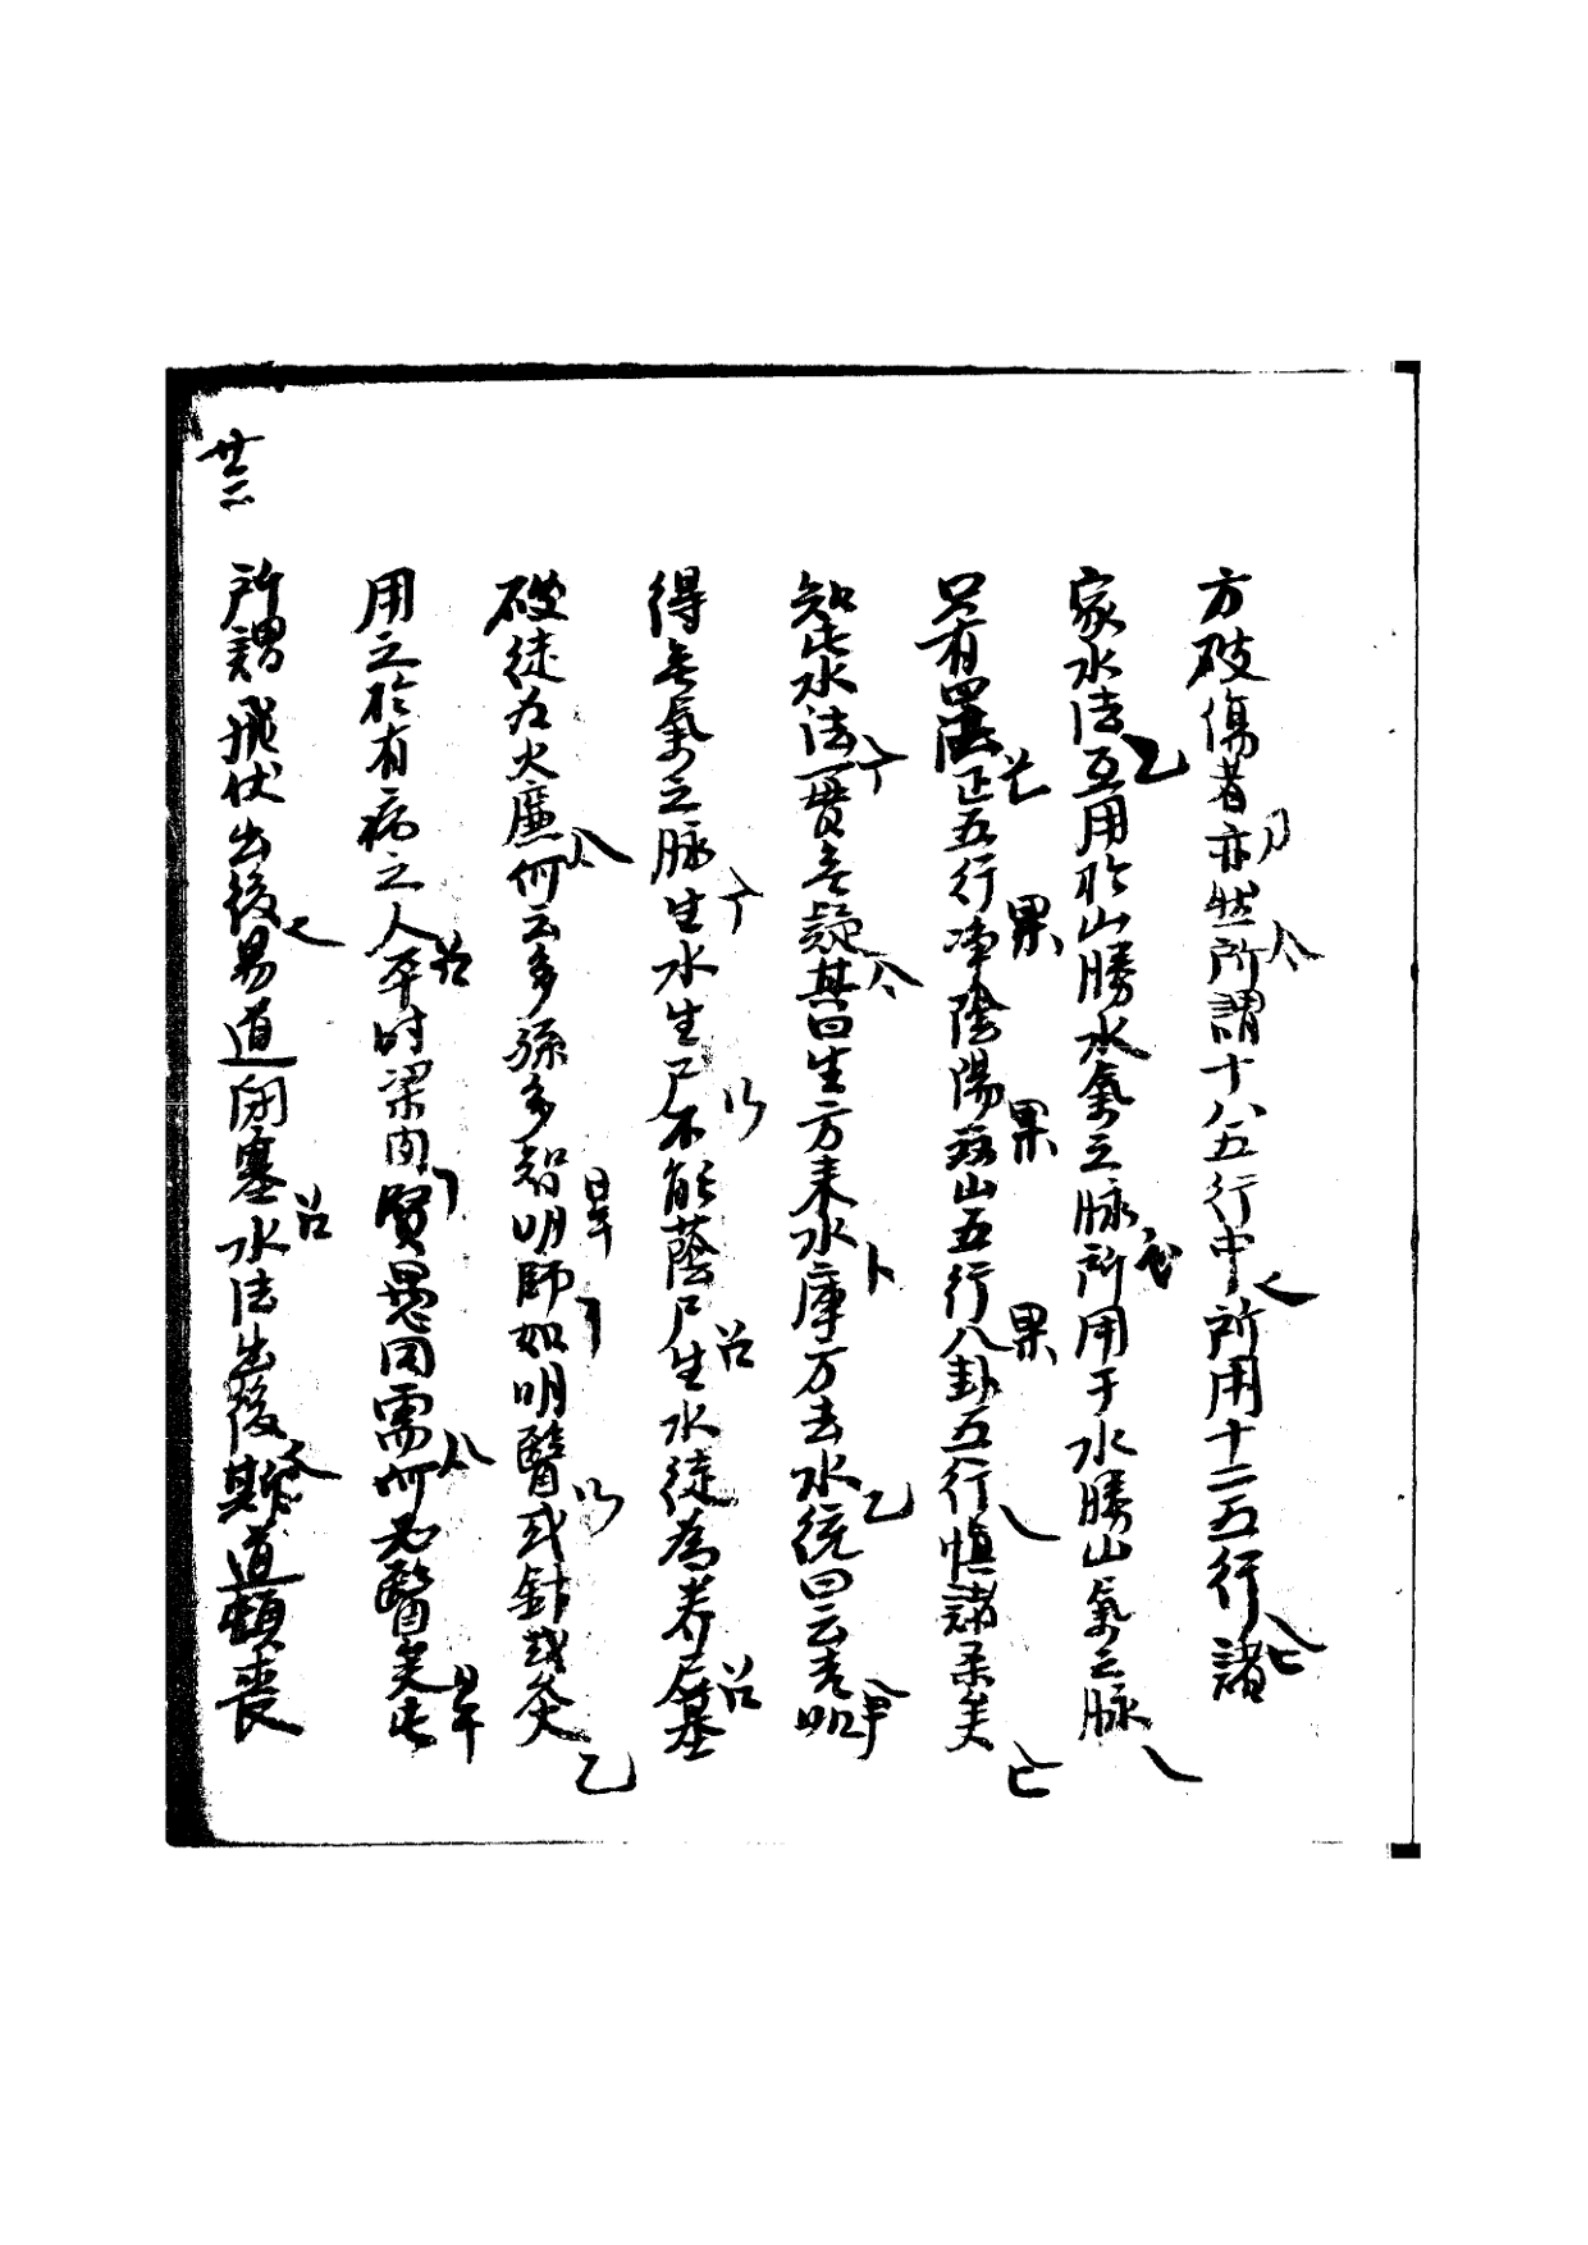 方破傷者亦然所謂十八五行中所用十二五行諸
家水法互用於山勝水氣之脉所用于水勝山氣之脉
只有四法正五行渾陰陽砂山五行八卦五行愼諸柔美
知此水法一貫無疑其曰生方来水庫方去水統曰云吉叱
得無氣之脉生水生尸不能蔭尸生水徒為养尸墓
破徒为火廉何云多孫多智明師如明醫或針或灸
用之於有病之人平时梁肉賢愚同需何必醫矣此
所謂飛伏出後易道閉塞水法出後斯道頓喪
廿三